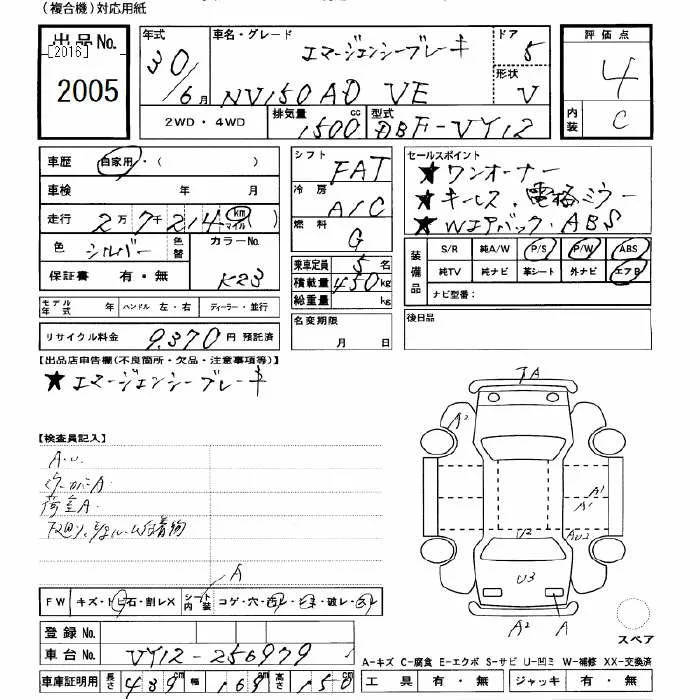 (複合機)対応用紙
出品No.
[2016]
2005
年式
30/6月
車名・グレード
エマージェンシーブレーキ
NV150AD VE
ドア
5
形状
V
2WD・4WD
排気量
1500cc
型式
DBF-VY12
評価点
4
内装
C
車歴 自家用・( )
車検 年 月
走行 2万7千214km マイル
色 シルバー 色替 カラーNo. K23
保証書 有・無
モデル年式 年 ハンドル 左・右 ディーラー・並行
リサイクル料金 9,370円 預託済
シフト
FAT
冷房
A/C
燃料
G
乗車定員 5名
積載量 450kg
総重量 kg
名変期限
月 日
セールスポイント
★ワンオーナー
★キーレス、電格ミラー
★Wエアバック・ABS
装備品
S/R 純A/W P/S P/W ABS
純TV 純ナビ 革シート 外ナビ エアB
ナビ型番:
後日品
【出品店申告欄(不良箇所・欠品・注意事項等)】
★エマージェンシーブレーキ
【検査員記入】
荷室A
A
FW キズ・トビ石・割レX シート内装 コゲ・穴・
登録No.
車台No. VY12-256979
車庫証明用 長さ 439cm 幅 169cm 高さ 150cm
A
A²
A¹
A¹
U2
AU2
U3
A²
A
スペア
A-キズ C-腐食 E-エクボ S-サビ U-凹ミ W-補修 XX-交換済
工具 有・無 ジャッキ 有・無